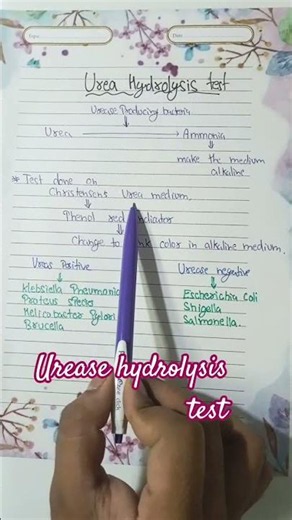 Urea Hydrolysis test
Urease Producing bacteria
Urea Ammonia
make the medium
alkaline.
* Test done on
Christensens Urea medium.
Phenol red
Change to color in alkaline medium.
Urease Positive Urease negative
Klebsiella Pneumonia Escherichia Coli
Proteus species Shigella
Helicobacter Pylori Salmonella.
Brucella
Urease hydrolysis
test